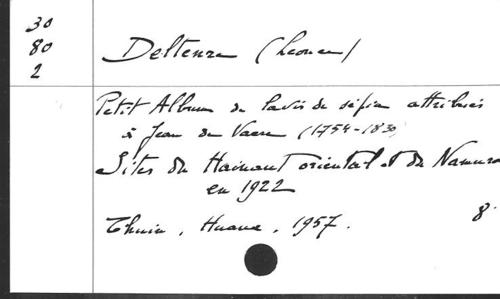 30
80
2
Deltenre (Léonce)
Petit Album de lavis de sépia attribués
à Jean de Vaere (1754-1830)
Sites du Hainaut oriental et du Namurois
en 1922
Thuin, Huaux, 1957.
8°